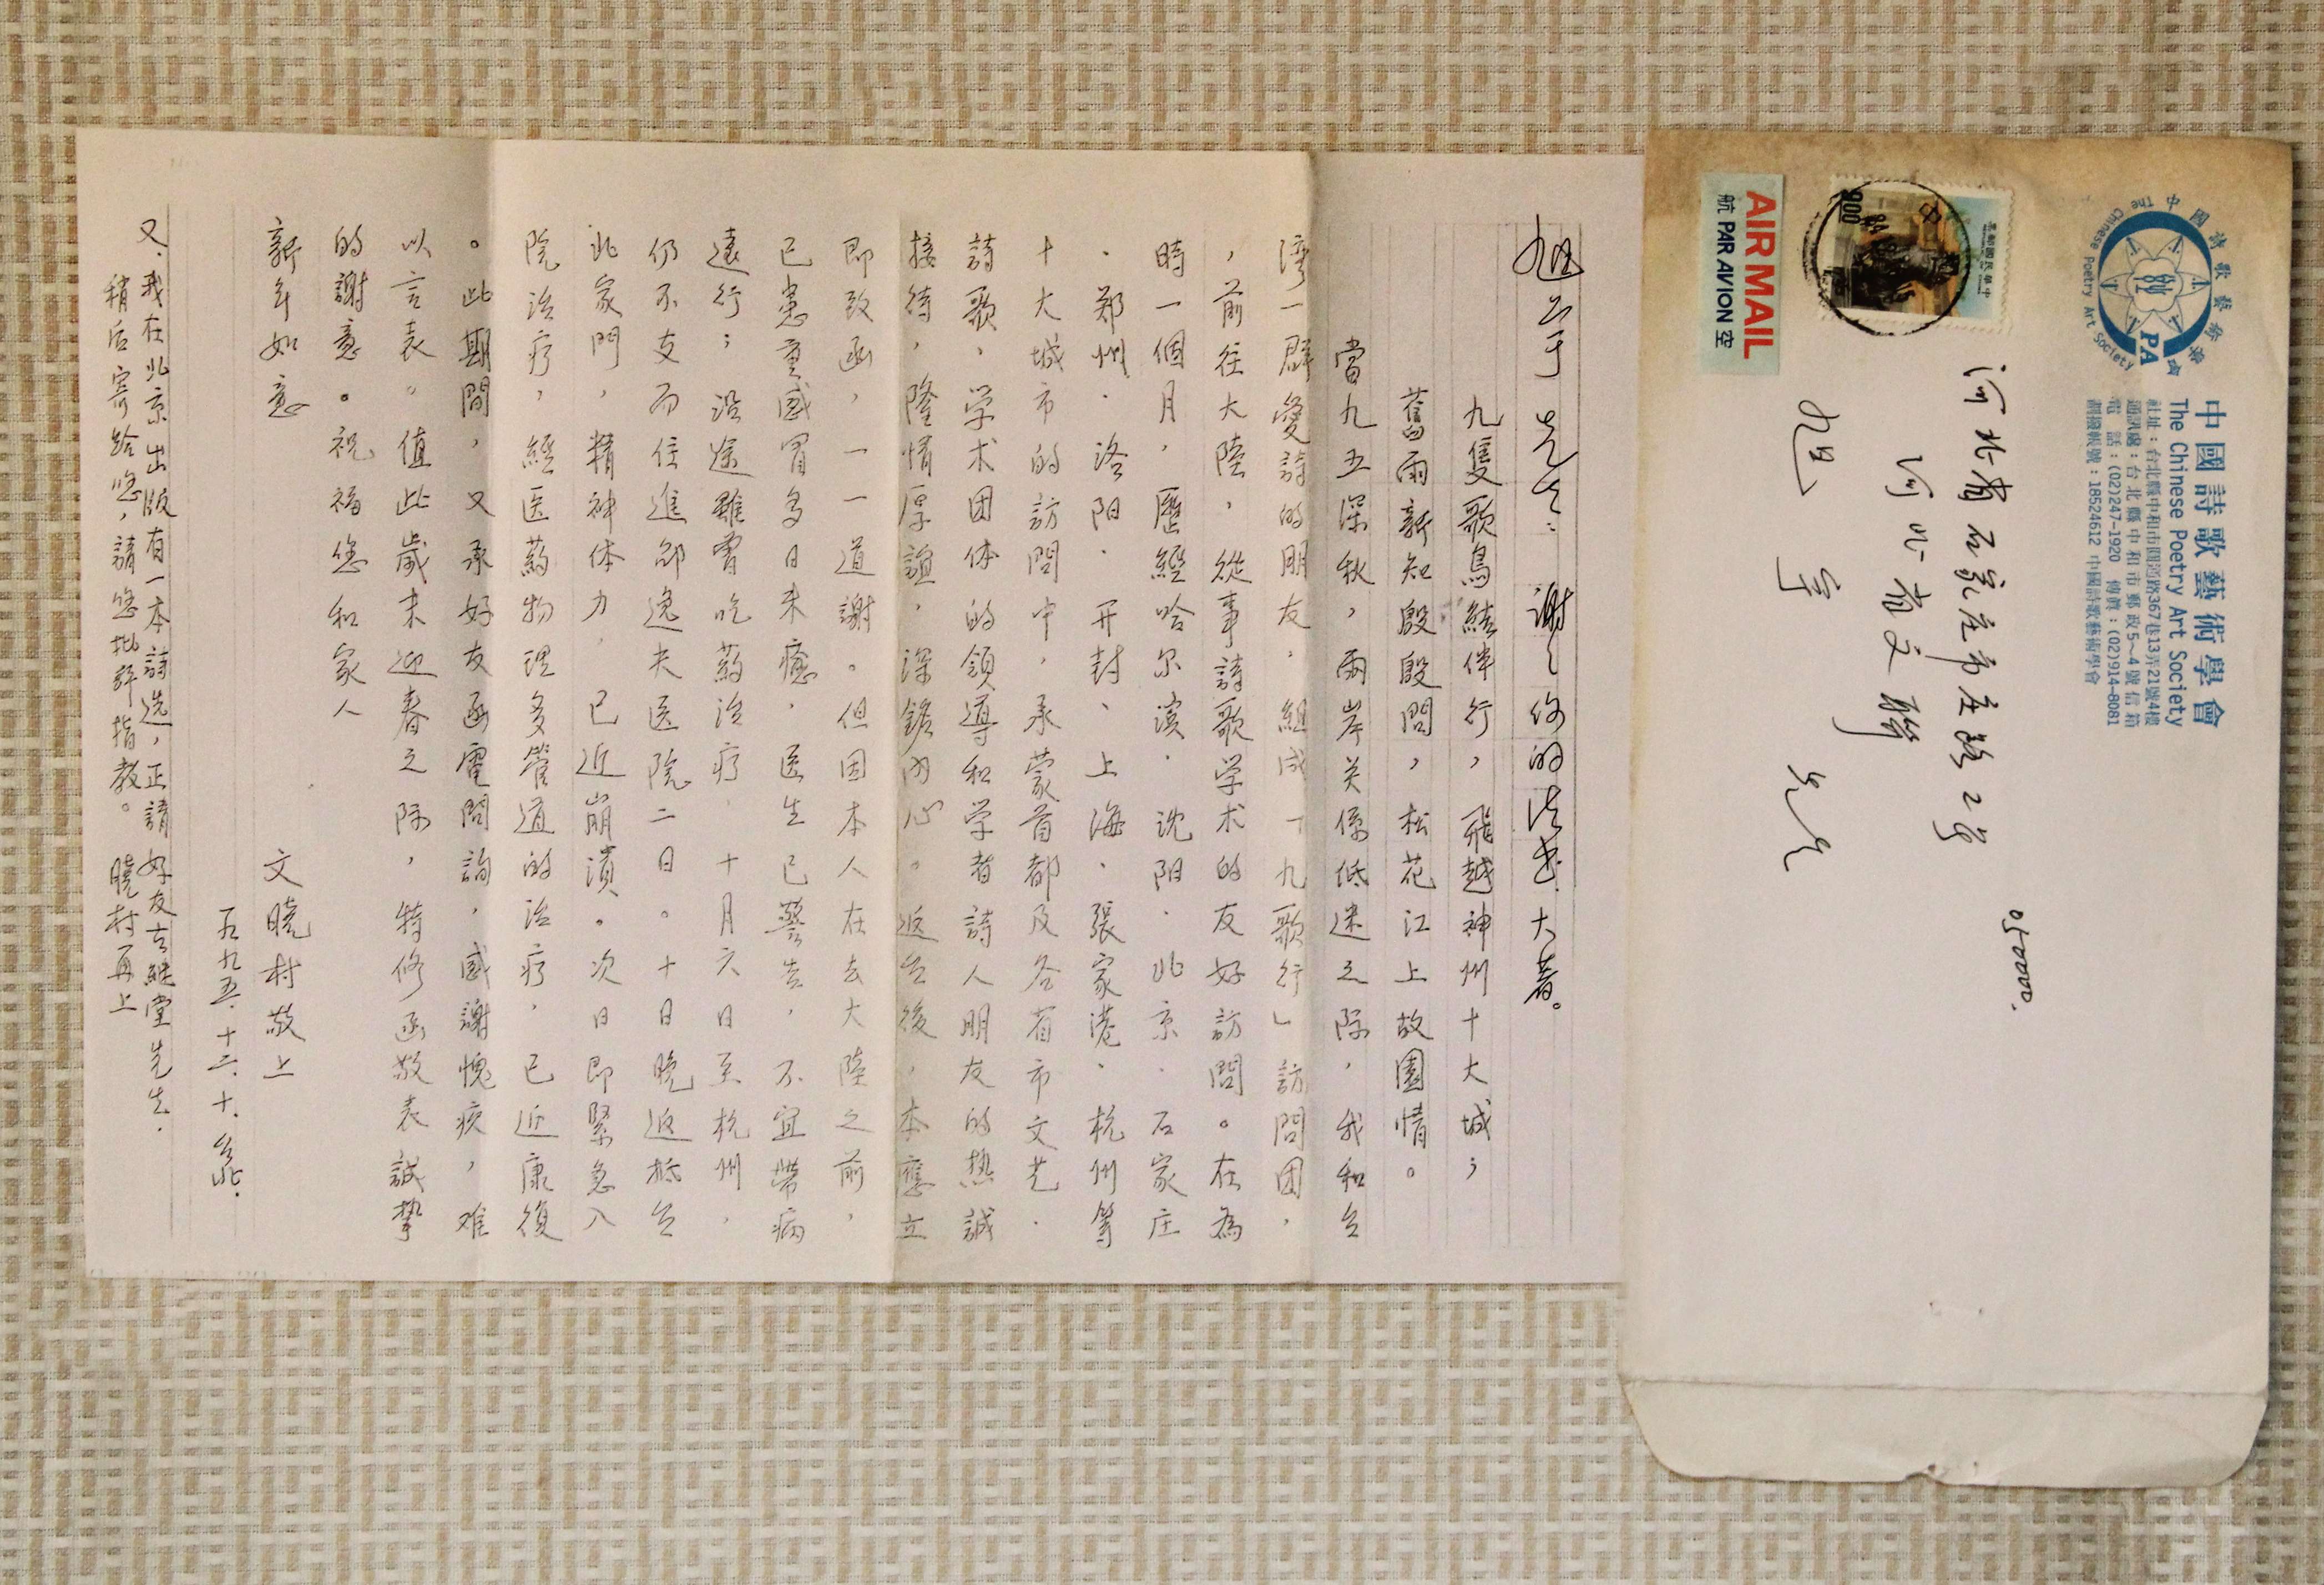 旭宇先生：謝謝你的法書大著。
九隻歌鳥結伴行，飛越神州十大城；
舊雨新知殷殷問，松花江上故園情。
當九五深秋，兩岸关係低迷之际，我和台
灣一群愛詩的朋友，組成「九歌行」訪問团，
，前往大陸，從事詩歌学术的友好訪問。在為
時一個月，歷經哈尔濱．沈阳．北京．石家庄
．郑州．洛阳．开封、上海．張家港．杭州等
十大城市的訪問中，承蒙首都及各省市文艺．
詩歌，学术团体的领導和学者詩人朋友的热誠
接待，隆情厚誼，深銘内心。返台後，本應立
即致函，一一道謝。但因本人在去大陸之前，
已患重感冒多日未癒，医生已警告，不宜带病
遠行；沿途雖曾吃葯治疗，十月六日至杭州，
仍不支而住進邵逸夫医院二日。十日晚返抵台
北家門，精神体力，已近崩潰。次日即緊急入
院治疗，經医葯物理多管道的治疗，已近康復
。此期間，又承好友函電問詢，感謝愧疚，难
以言表。值此歲末迎春之际，特修函敬表誠挚
的謝意。祝福您和家人
新年如意
文曉村敬上
一九九五．十二．十．台北．
又．我在北京出版有一本詩选，正請好友古継堂先生．
稍后寄給您，請您批評指教。曉村再上
中國詩歌藝術學會
The Chinese Poetry Art Society
PA
中國詩歌藝術學會
The Chinese Poetry Art Society
社址：台北縣中和市圓通路367巷13弄21號4樓
通訊處：台北縣中和市郵政5～4號信箱
電話：(02)247-1920 傳眞：(02)914-8081
劃撥帳號：18524612 中國詩歌藝術學會
050000.
河北省石家庄市庄路2号
河北省文聯
旭宇 先生
中華民國郵票
900
AIR MAIL
航 PAR AVION 空